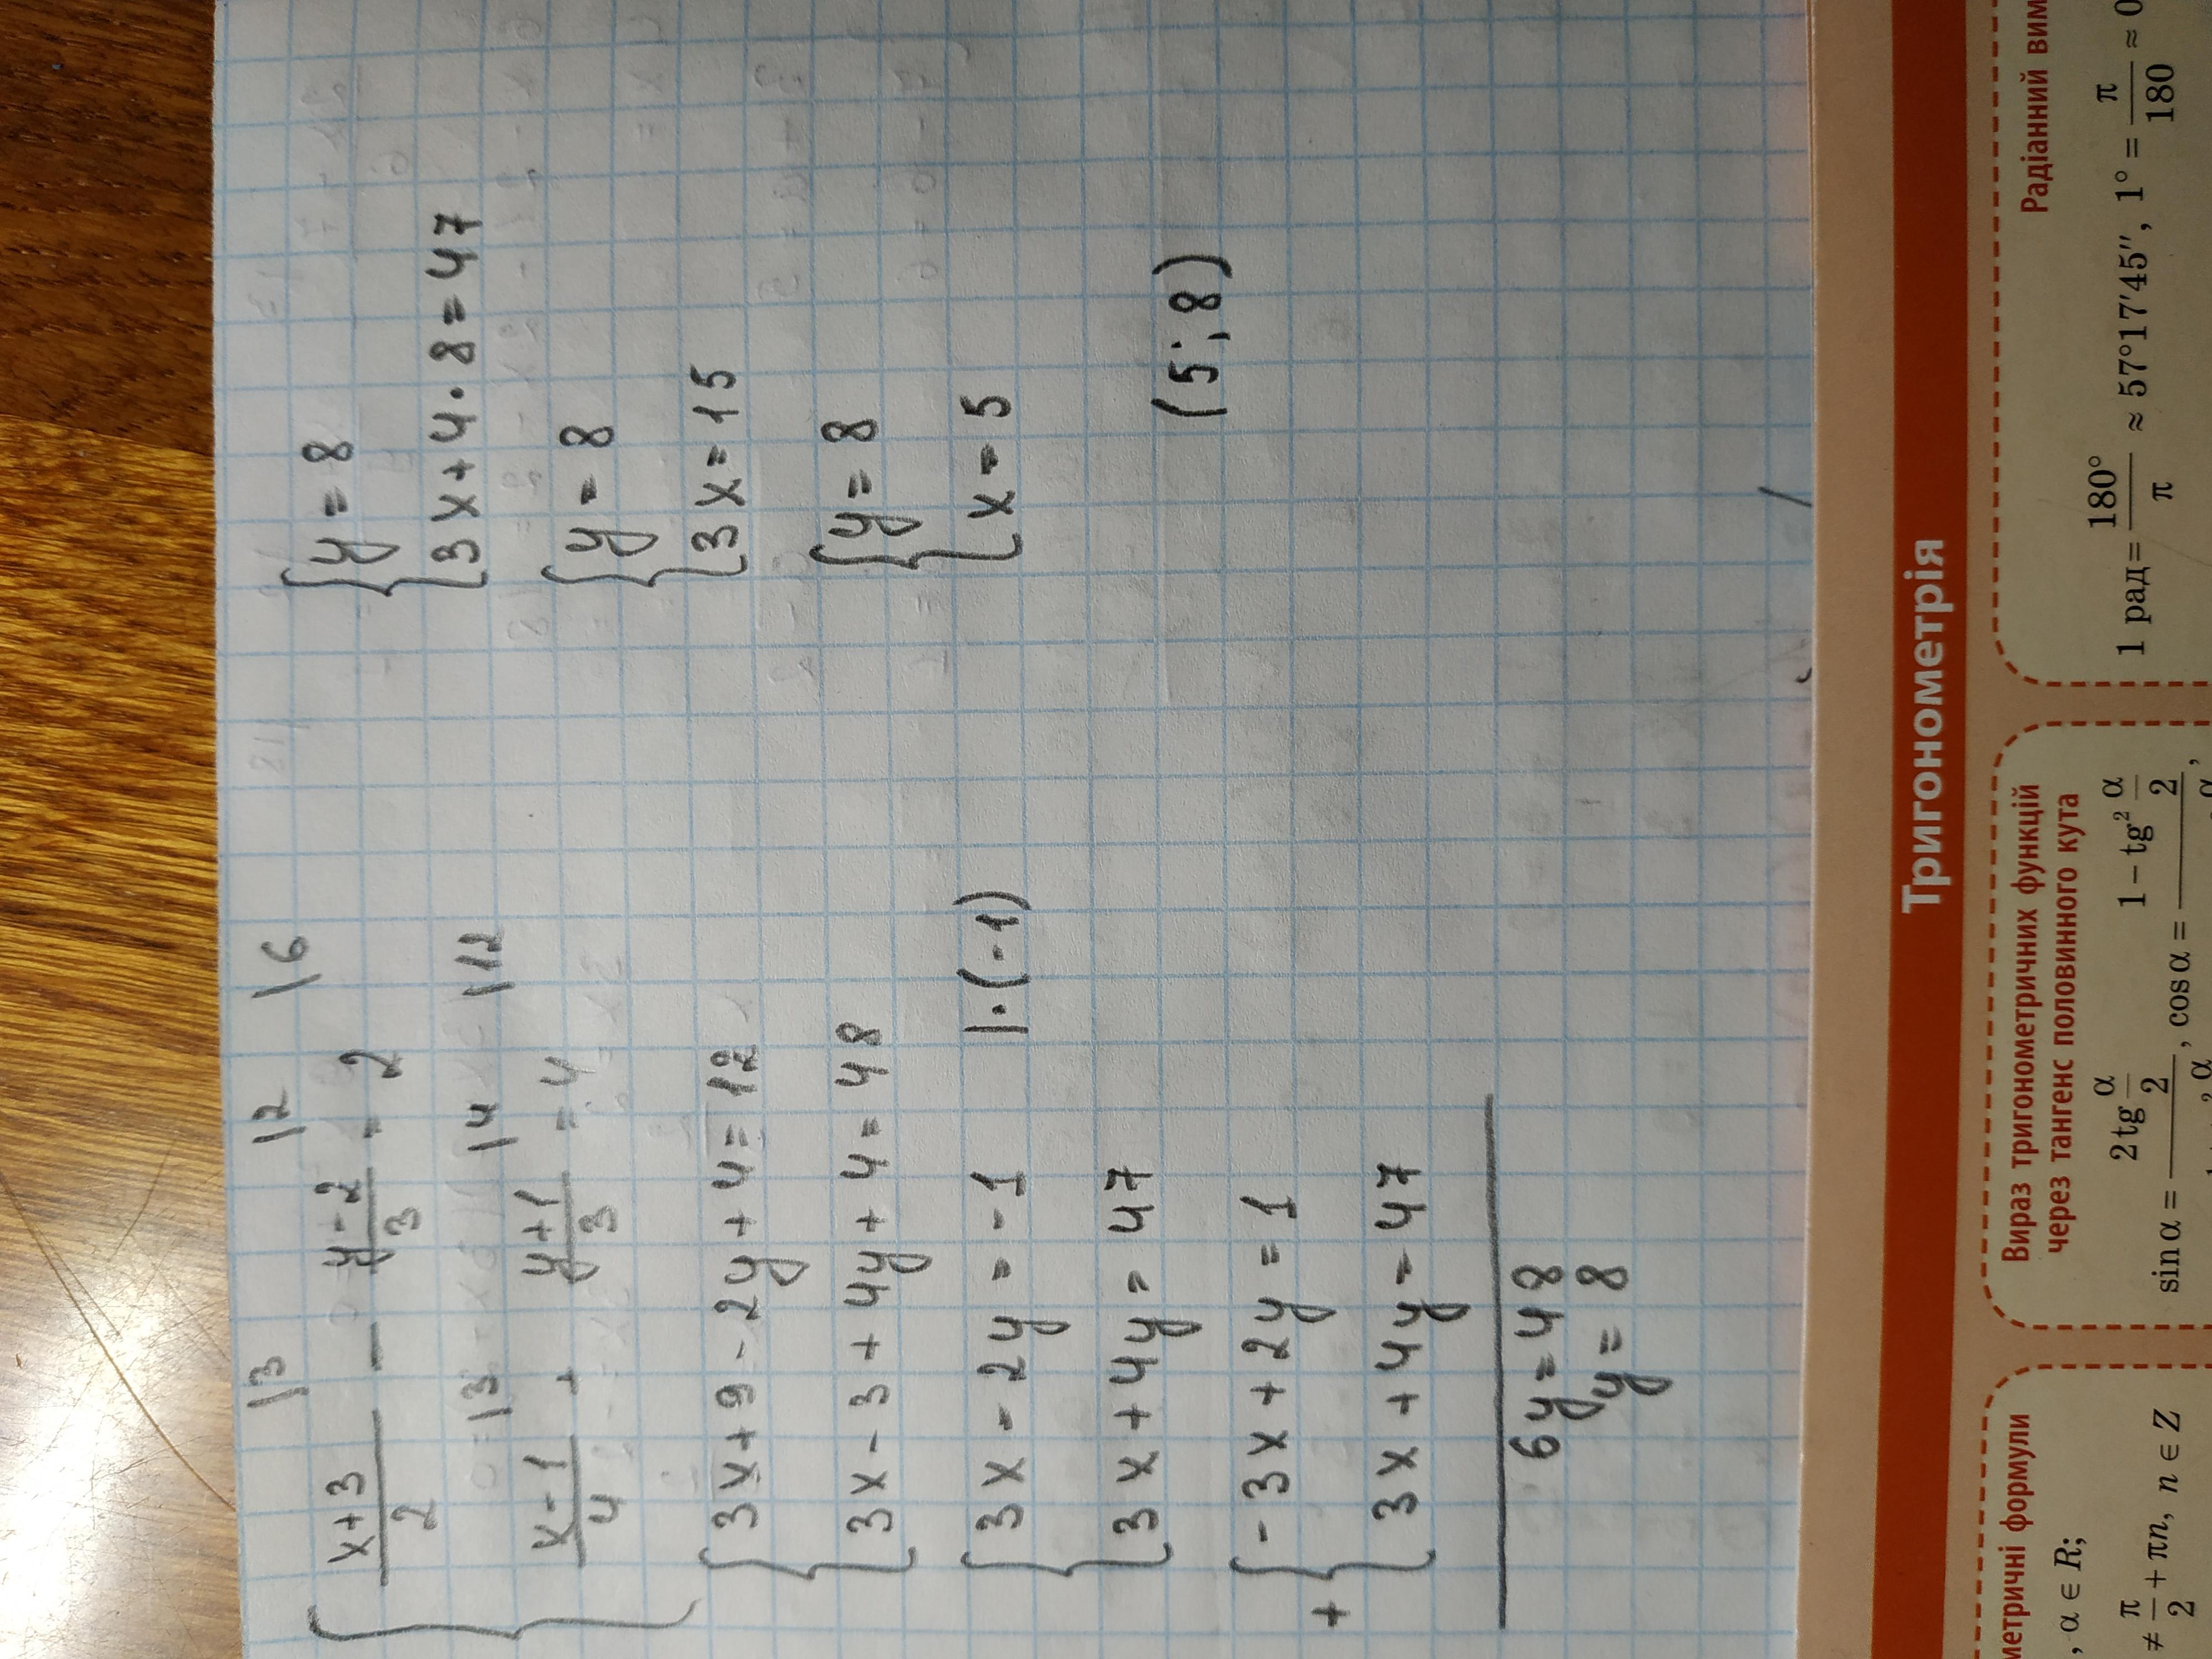 |3 |2 |6
{ x+3/2 − y-2/3 = 2
|3 |4 |12
x-1/4 + y+1/3 = 4
{ 3x+9-2y+4=12
3x-3+4y+4=48
{ 3x-2y=-1 |·(-1)
3x+4y=47
+ { -3x+2y=1
3x+4y=47
6y=48
y=8
{ y=8
3x+4·8=47
{ y=8
3x=15
{ y=8
x=5
(5;8)
Тригонометрія
метричні формули
, α ∈ R;
≠ π/2 + πn, n ∈ Z
Вираз тригонометричних функцій
через тангенс половинного кута
sin α = 2tg α/2 , cos α = 1 − tg² α/2
Радіанний вим
1 рад= 180°/π ≈ 57°17′45″, 1° = π/180 ≈ 0